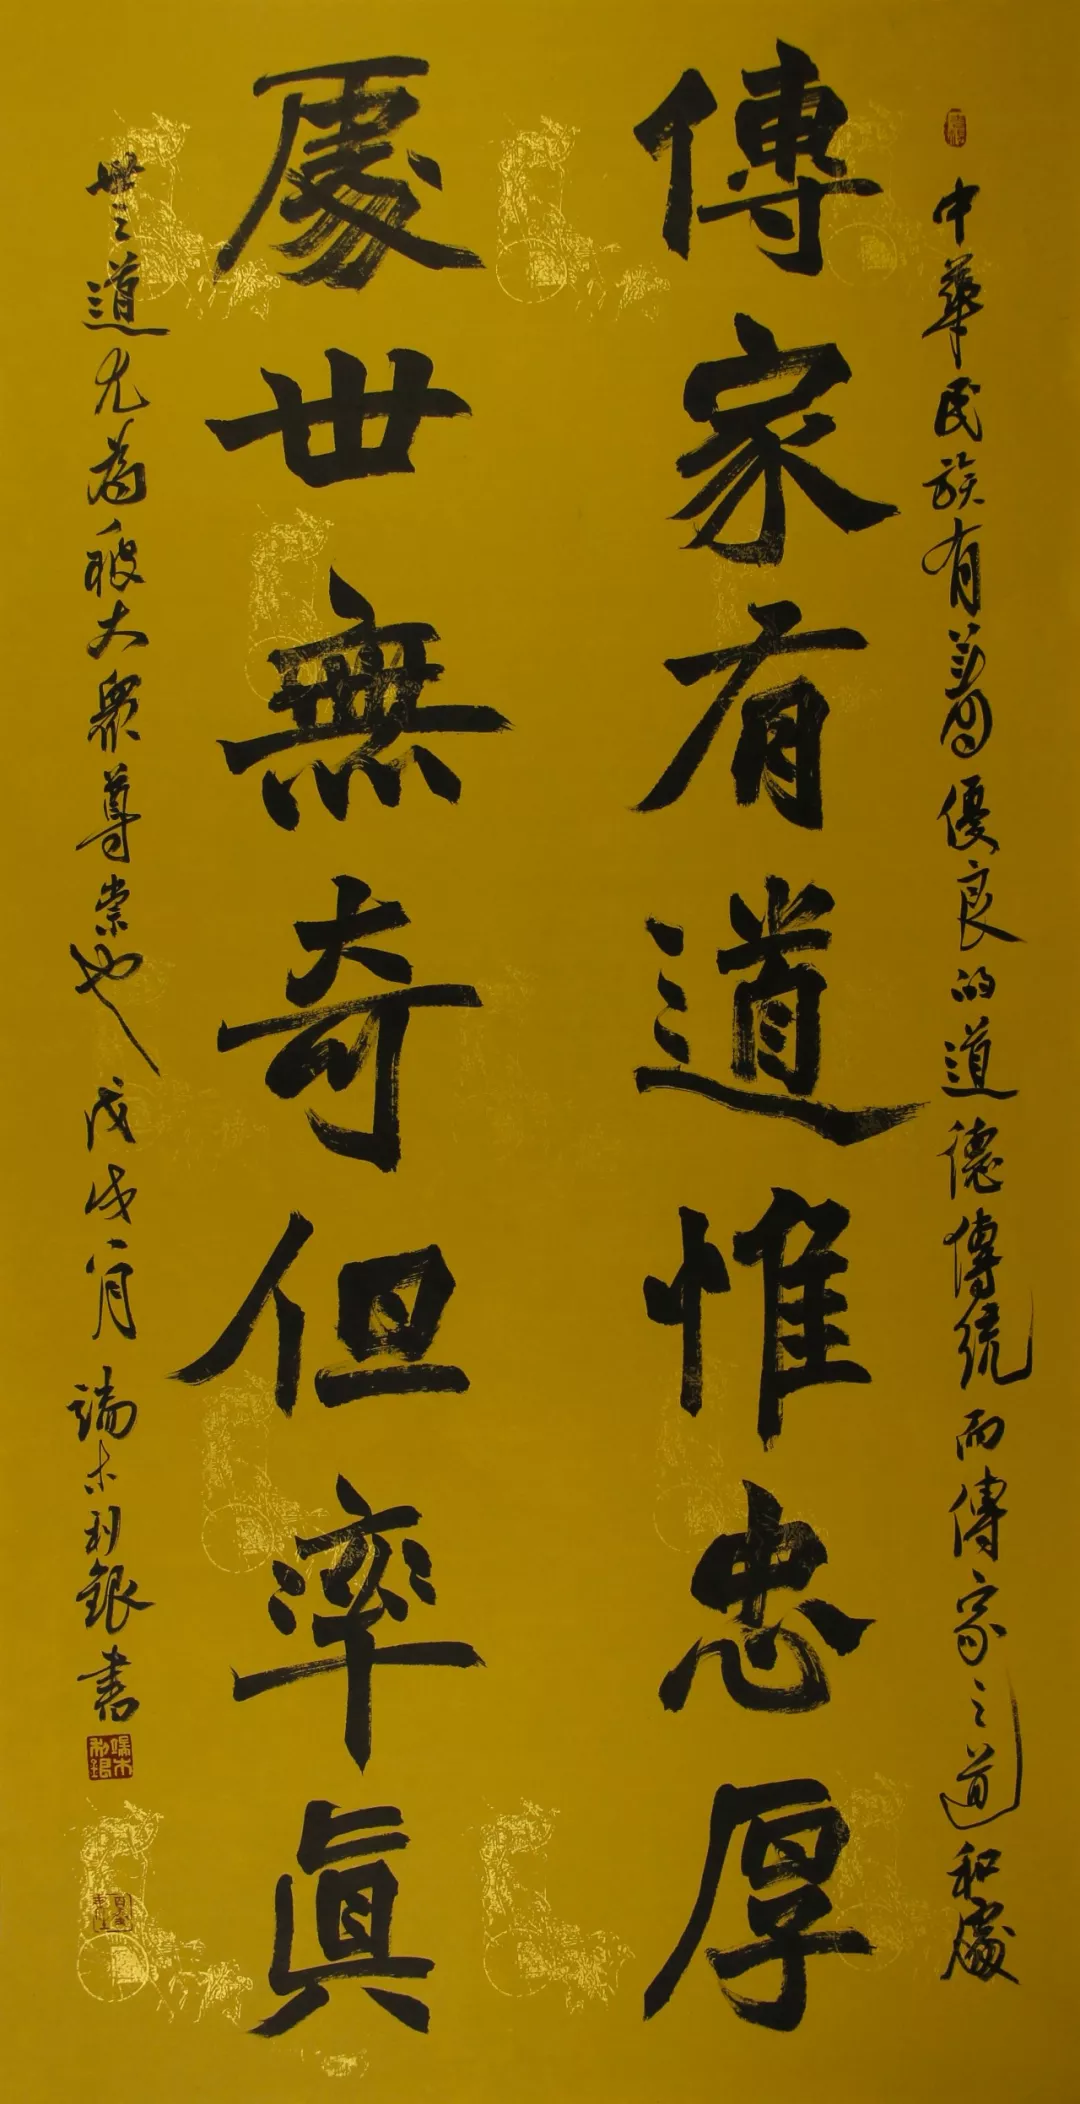 中華民族有着優良的道德傳統而傳家之道和處
傳家有道惟忠厚
處世無奇但率真
世之道尤為被大眾尊崇也 戊戌八月 端木利銀書
端木利銀